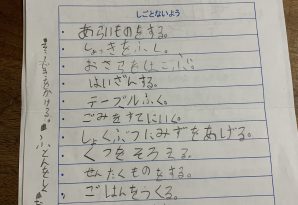 しごとないよう
・あらいものをする。
・しょっきをふく。
・おさらをはこぶ。
・はいぜんする。
・テーブルふく。
・ごみをすてにいく。
・しょくぶつにみずをあげる。
・くつをそろえる。
・せんたくものをする。
・ごはんをつくる。